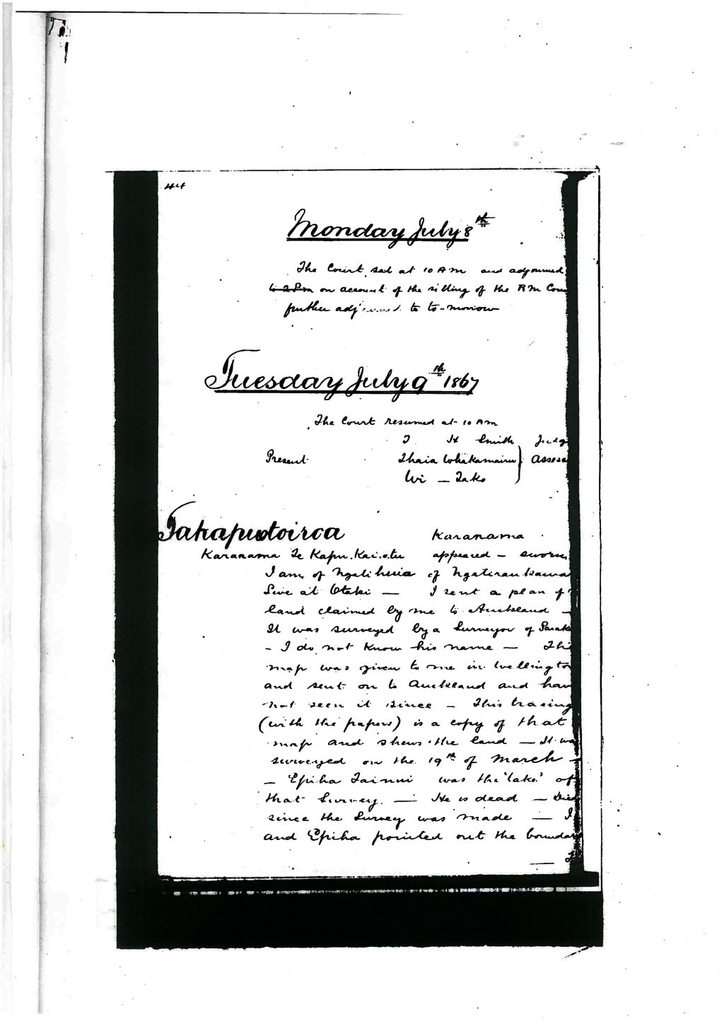 44
Monday July 8th
The Court sat at 10 AM and adjourned
to 2 Pm on account of the sitting of the RM Cou
further adjourned to to-morrow
Tuesday July 9th 1867
The Court resumed at 10 Am
T H Smith Judg
Present Ihaia Whakamairu } Assess
Wi - Tako
Tahapuotoiroa Karanama
Karanama Te Kapu.Kai.otu appeared - sworn
I am of Ngatihuia of Ngatiraukawa
Live at Otaki - I sent a plan of
land claimed by me to Auckland -
It was surveyed by a Surveyor of
- I do not know his name - This
map was given to me in Wellington
and sent on to Auckland and hav
not seen it since - This tracing
(with the papers) is a copy of that
map and shews the land - It wa
surveyed on the 19th of March -
- Epiha Tainui was the 'take' of
that Survey. - He is dead - Died
since the Survey was made - I
and Epiha pointed out the boundar